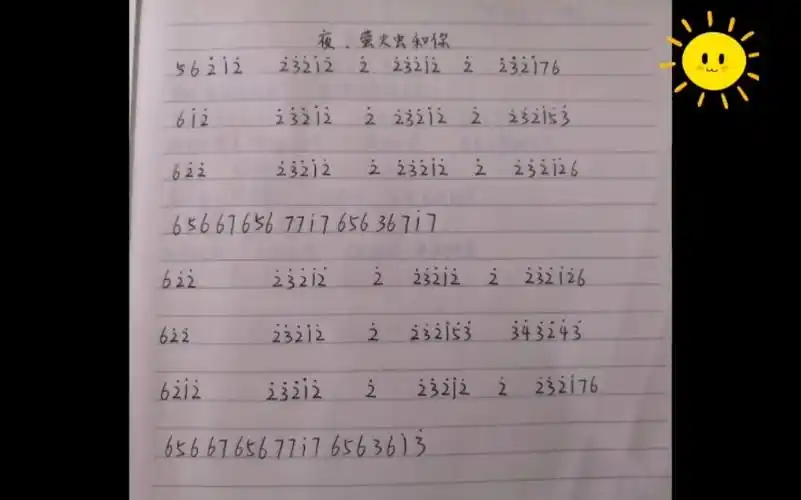 夜、萤火虫和你
5 6 2̇ 1̇ 2̇ 2̇3̇2̇1̇2̇ 2̇ 2̇3̇2̇1̇2̇ 2̇ 2̇3̇2̇1̇76
6 1̇ 2̇ 2̇3̇2̇1̇2̇ 2̇ 2̇3̇2̇1̇2̇ 2̇ 2̇3̇2̇1̇5̇3̇
6 2̇ 2̇ 2̇3̇2̇1̇2̇ 2̇ 2̇3̇2̇1̇2̇ 2̇ 2̇3̇2̇1̇2̇6
6 5 6 6 7 6 5 6 7 7 1̇ 7 6 5 6 3 6 7 1̇ 7
6 2̇ 2̇ 2̇3̇2̇1̇2̇ 2̇ 2̇3̇2̇1̇2̇ 2̇ 2̇3̇2̇1̇2̇6
6 2̇ 2̇ 2̇3̇2̇1̇2̇ 2̇ 2̇3̇2̇1̇5̇3̇ 3̇4̇3̇2̇4̇3̇
6 2̇ 1̇ 2̇ 2̇3̇2̇1̇2̇ 2̇ 2̇3̇2̇1̇2̇ 2̇ 2̇3̇2̇1̇76
6 5 6 6 7 6 5 6 7 7 1̇ 7 6 5 6 3 6 1̇ 3̇